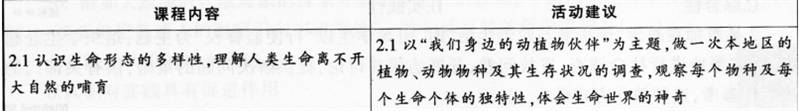 课程内容
活动建议
2.1 认识生命形态的多样性,理解人类生命离不开
大自然的哺育
2.1 以“我们身边的动植物伙伴”为主题,做一次本地区的
植物、动物物种及其生存状况的调查,观察每个物种及每
个生命个体的独特性,体会生命世界的神奇